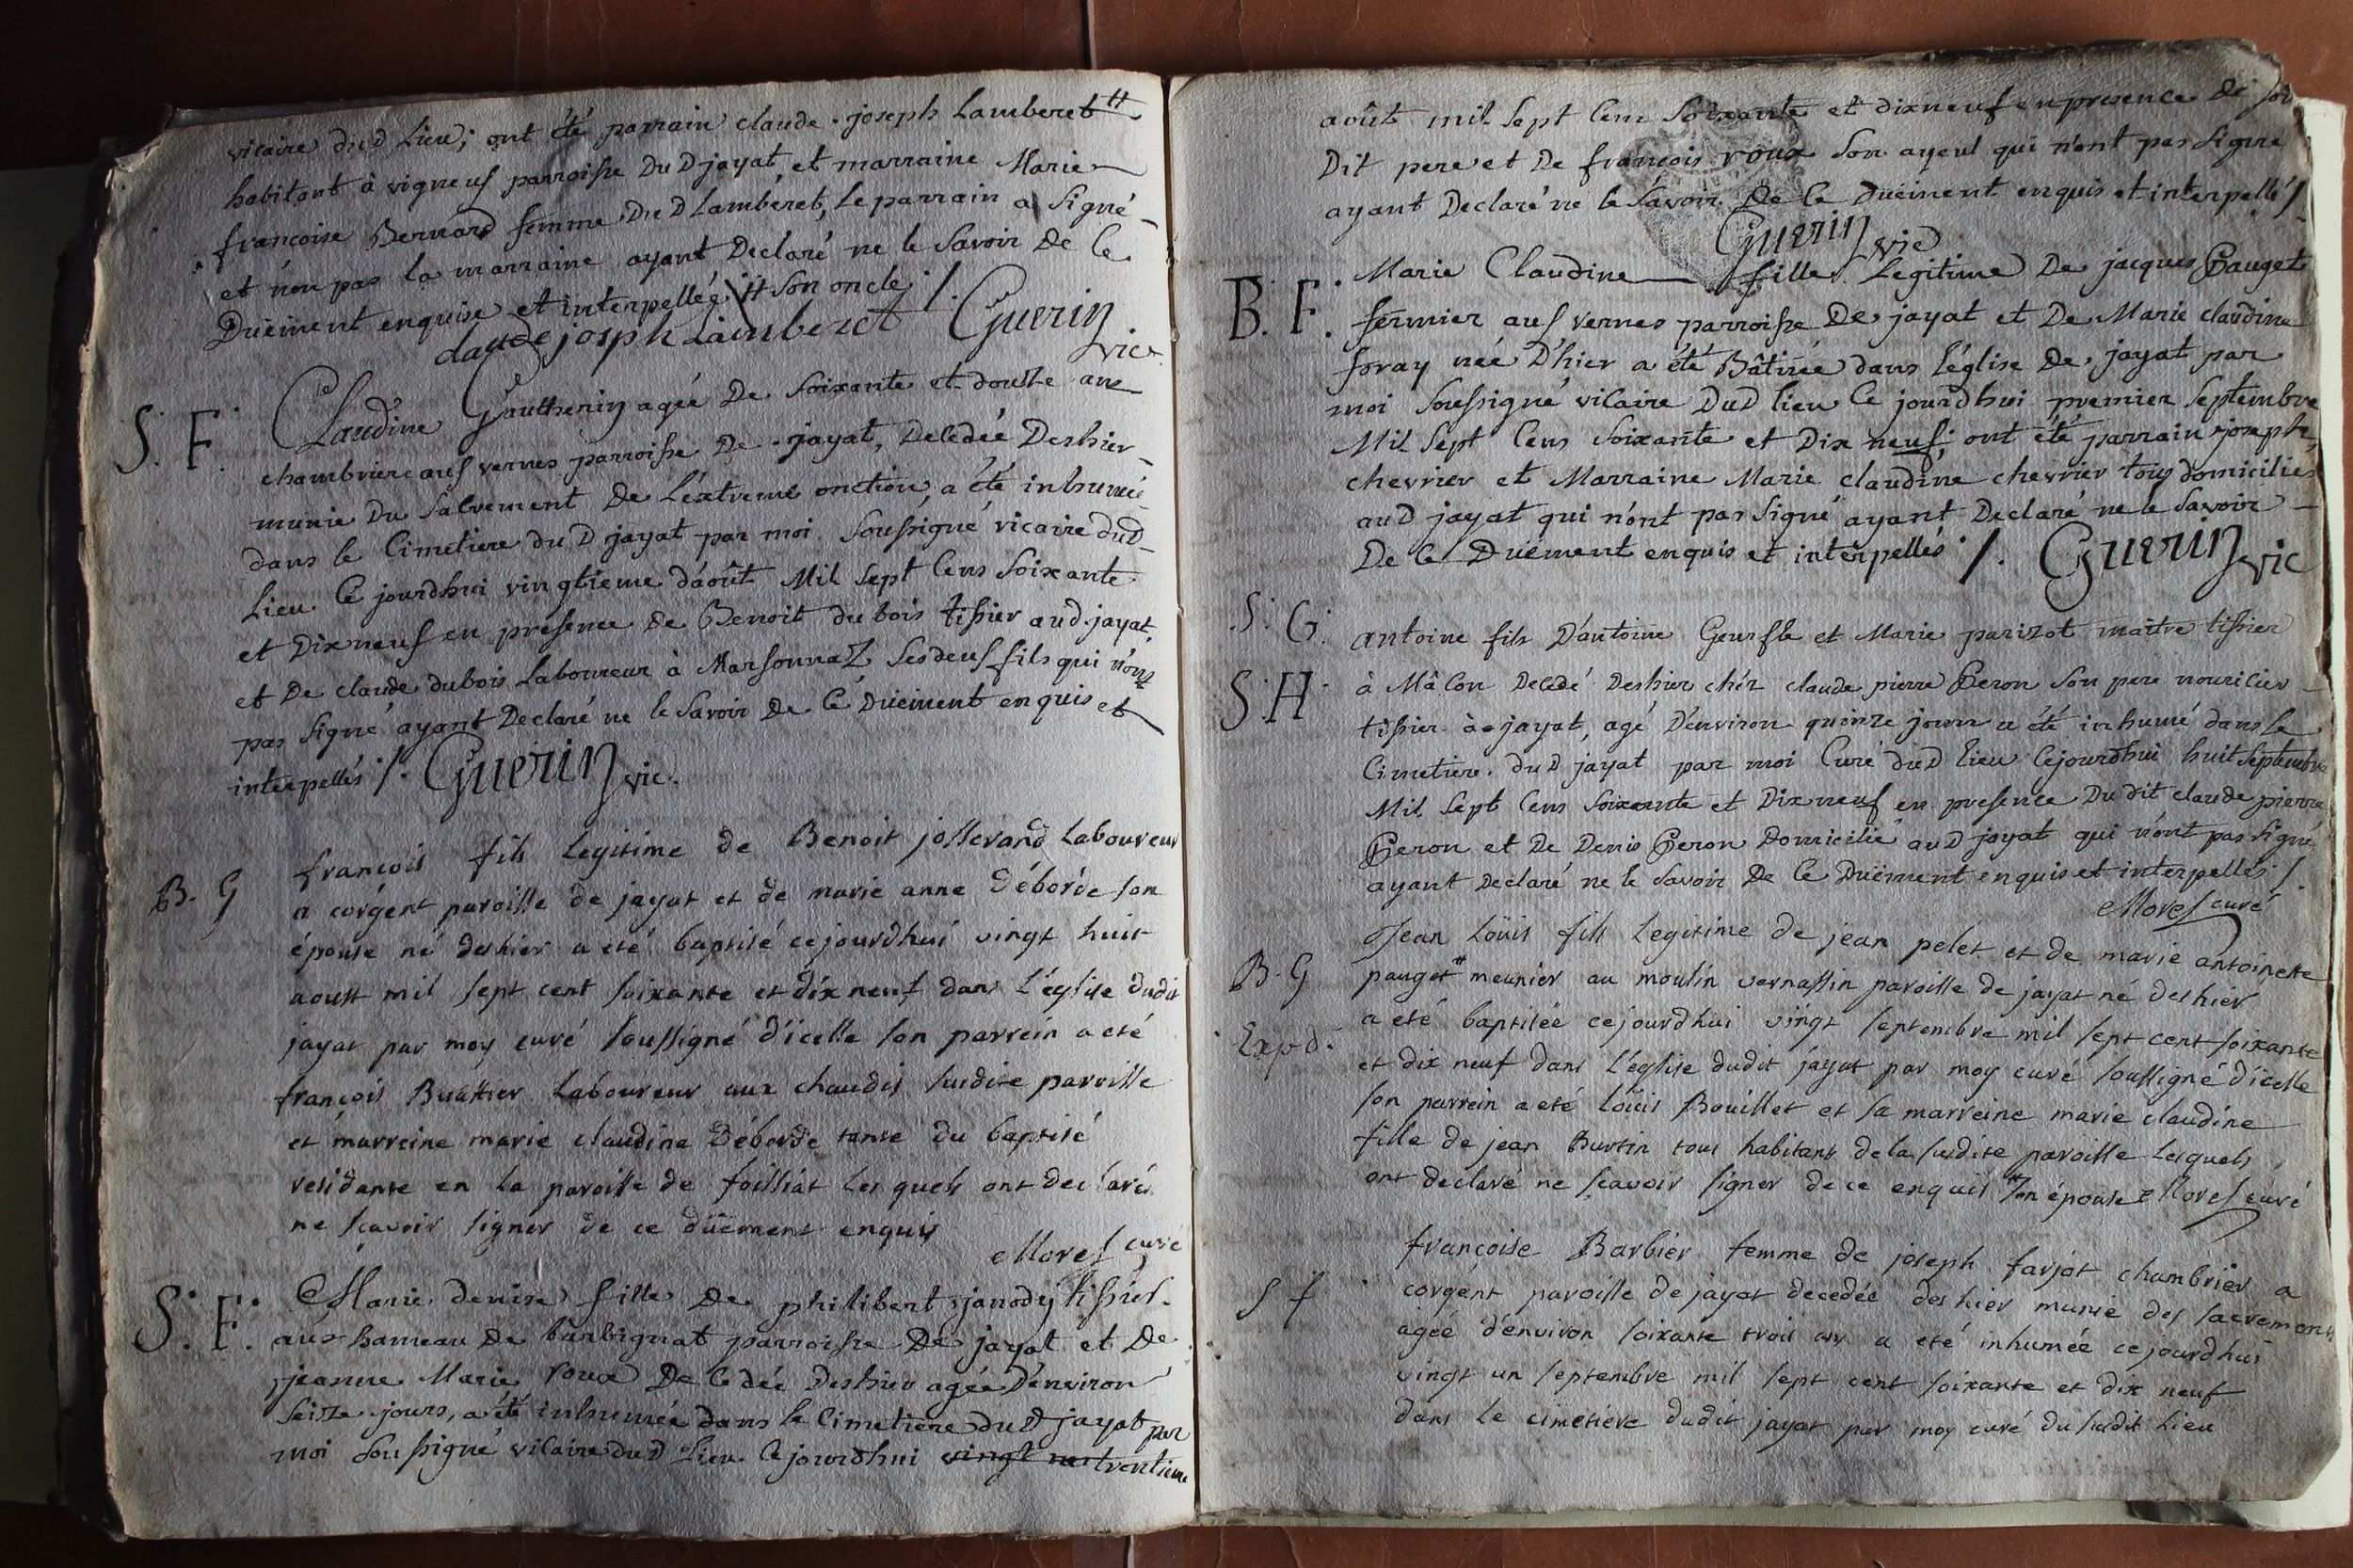 vicaire dud Lieu; ont été parrain claude joseph Lamberet #
habitant à vigneuf parroisse Du D jayat, et marraine Marie
francoise Bernard femme Du D Lamberet, le parrain a Signé
et non pas la marraine ayant Declaré ne le Savoir De Ce
Duëment enquise et interpellée # Son oncle ./.
claude joseph Lamberet Guerin vic
S. F. Claudine Gauthenin agée De Soixante et douse ans
chambriere aus vernes parroisse De jayat, Decedée Deshier
munie Du Sacrement De L'extreme onction, a été inhumée
dans le Cimetiere du D jayat par moi Soussigné vicaire dud
Lieu Ce jourdhui vingtieme d'août Mil Sept Cens Soixante
et Dixneuf en presence De Benoit du bois tissier aud jayat,
et De claude dubois Laboureur à Marsonnaz Ses deus fils qui n'ont
pas Signé ayant Declaré ne le Savoir De Ce Duëment enquis et
interpellés ./. Guerin vic.
B. G françois fils Legitime de Benoit jossevand Laboureur
a corgent paroisse de jayat et de marie anne Déborde son
épouse né deshier a eté baptisé cejourdhui vingt huit
aoust mil sept cent soixante et dix neuf dans l'église dudit
jayat par moy curé soussigné d'icelle son parrein a eté
françois Buattier Laboureur aux chaudis susdite paroisse
et marreine marie claudine Déborde tante du baptisé
residante en la paroisse de foissiat Les quels ont declaré
ne scavoir signer de ce düement enquis
Morel curé
S. F. Marie denise fille De philibert janody tissier
aus hameau De barbignat parroisse De jayat et De
jeanne Marie roux Decedée Deshier agée D'environ
Seize jours, a été inhumée dans le Cimetiere du D jayat par
moi Soussigné vicaire du D Lieu Ce jourdhui vingt neu trentieme
août mil Sept Cens Soixante et dixneuf en presence De
Dit pere et De françois roux Son ayeul qui n'ont pas Signé
ayant Declaré ne le Savoir De Ce Duëment enquis et interpellé ./.
Guerin vic
B. F. Marie Claudine fille Legitime De jacques Pauget
fermier aus vernes parroisse De jayat et De Marie claudine
foray née D'hier a été Bâtisée dans l'église De jayat par
moi Soussigné vicaire Dud lieu Ce jourdhui premier Septembre
Mil Sept Cens Soixante et Dix neuf; ont été parrain joseph
chevrier et Marraine Marie claudine chevrier tous domiciliés
au D jayat qui n'ont pas Signé ayant Declaré ne le Savoir
De Ce Duëment enquis et interpellés ./. Guerin vic
S. G. antoine fils D'antoine et Marie parizot maître tissier
S. H à Mâcon Decedé Deshier chéz claude pierre Peron Son pere nouricier
tissier à jayat, agé D'environ quinze jours a été inhumé dans le
Cimetiere du D jayat par moi Curé du D lieu Cejourdhui huit Septembre
Mil Sept Cens Soixante et Dixneuf en presence Du dit claude pierre
Peron et De Denis Peron Domicilié au D jayat qui n'ont pas Signé
ayant Declaré ne le Savoir De Ce Duëment enquis et interpellés ./.
Morel curé
Jean Loüis fils Legitime de jean pelet et de marie antoinette
B. G pauget # meunier au moulin vernassin paroisse de jayat né deshier
Exp.d. a eté baptisée cejourdhui vingt septembre mil sept cent soixante
et dix neuf dans l'église dudit jayat par moy curé soussigné d'icelle
son parrein a eté Loüis Bouillet et sa marreine marie claudine
fille de jean Burtin tous habitans de la susdite paroisse Lesquels
ont declaré ne scavoir signer de ce enquis # son épouse Morel curé
françoise Barbier femme de joseph farjot chambrier a
S f corgent paroisse de jayat decedée deshier munie des sacremens
agée d'environ soixante trois ans a eté inhumée cejourdhui
vingt un septembre mil sept cent soixante et dix neuf
dans le cimetiere dudit jayat par moy curé du susdit Lieu